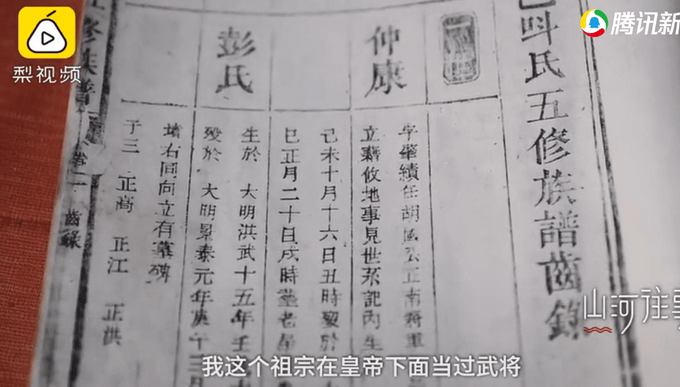 梨视频
腾讯新
氏五修族譜齒錄
仲康
字肇績任胡風公正南將軍
立籍收地事見世系記內生
己未十月十六日丑時歿於
巳正月二十日戌時塟老
彭氏
生於 大明洪武十五年壬
歿於 大明景泰元年庚午三
墳右同向立有墓碑
子三 正高 正江 正供
修族譜 卷二 齒錄
山河往事
我这个祖宗在皇帝下面当过武将